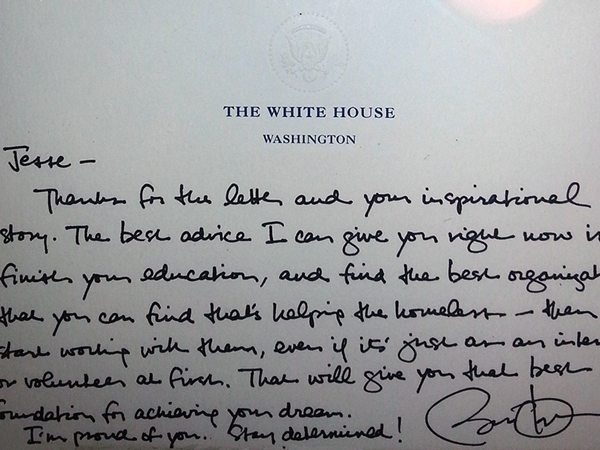 THE WHITE HOUSE
WASHINGTON
Jesse –
Thanks for the letter and your inspirational
story. The best advice I can give you right now is
finish your education, and find the best organizat
that you can find that's helping the homeless – then
start working with them, even if it's just as an inter
or volunteer at first. That will give you that best
oundation for achieving your dream.
I'm proud of you. Stay determined!